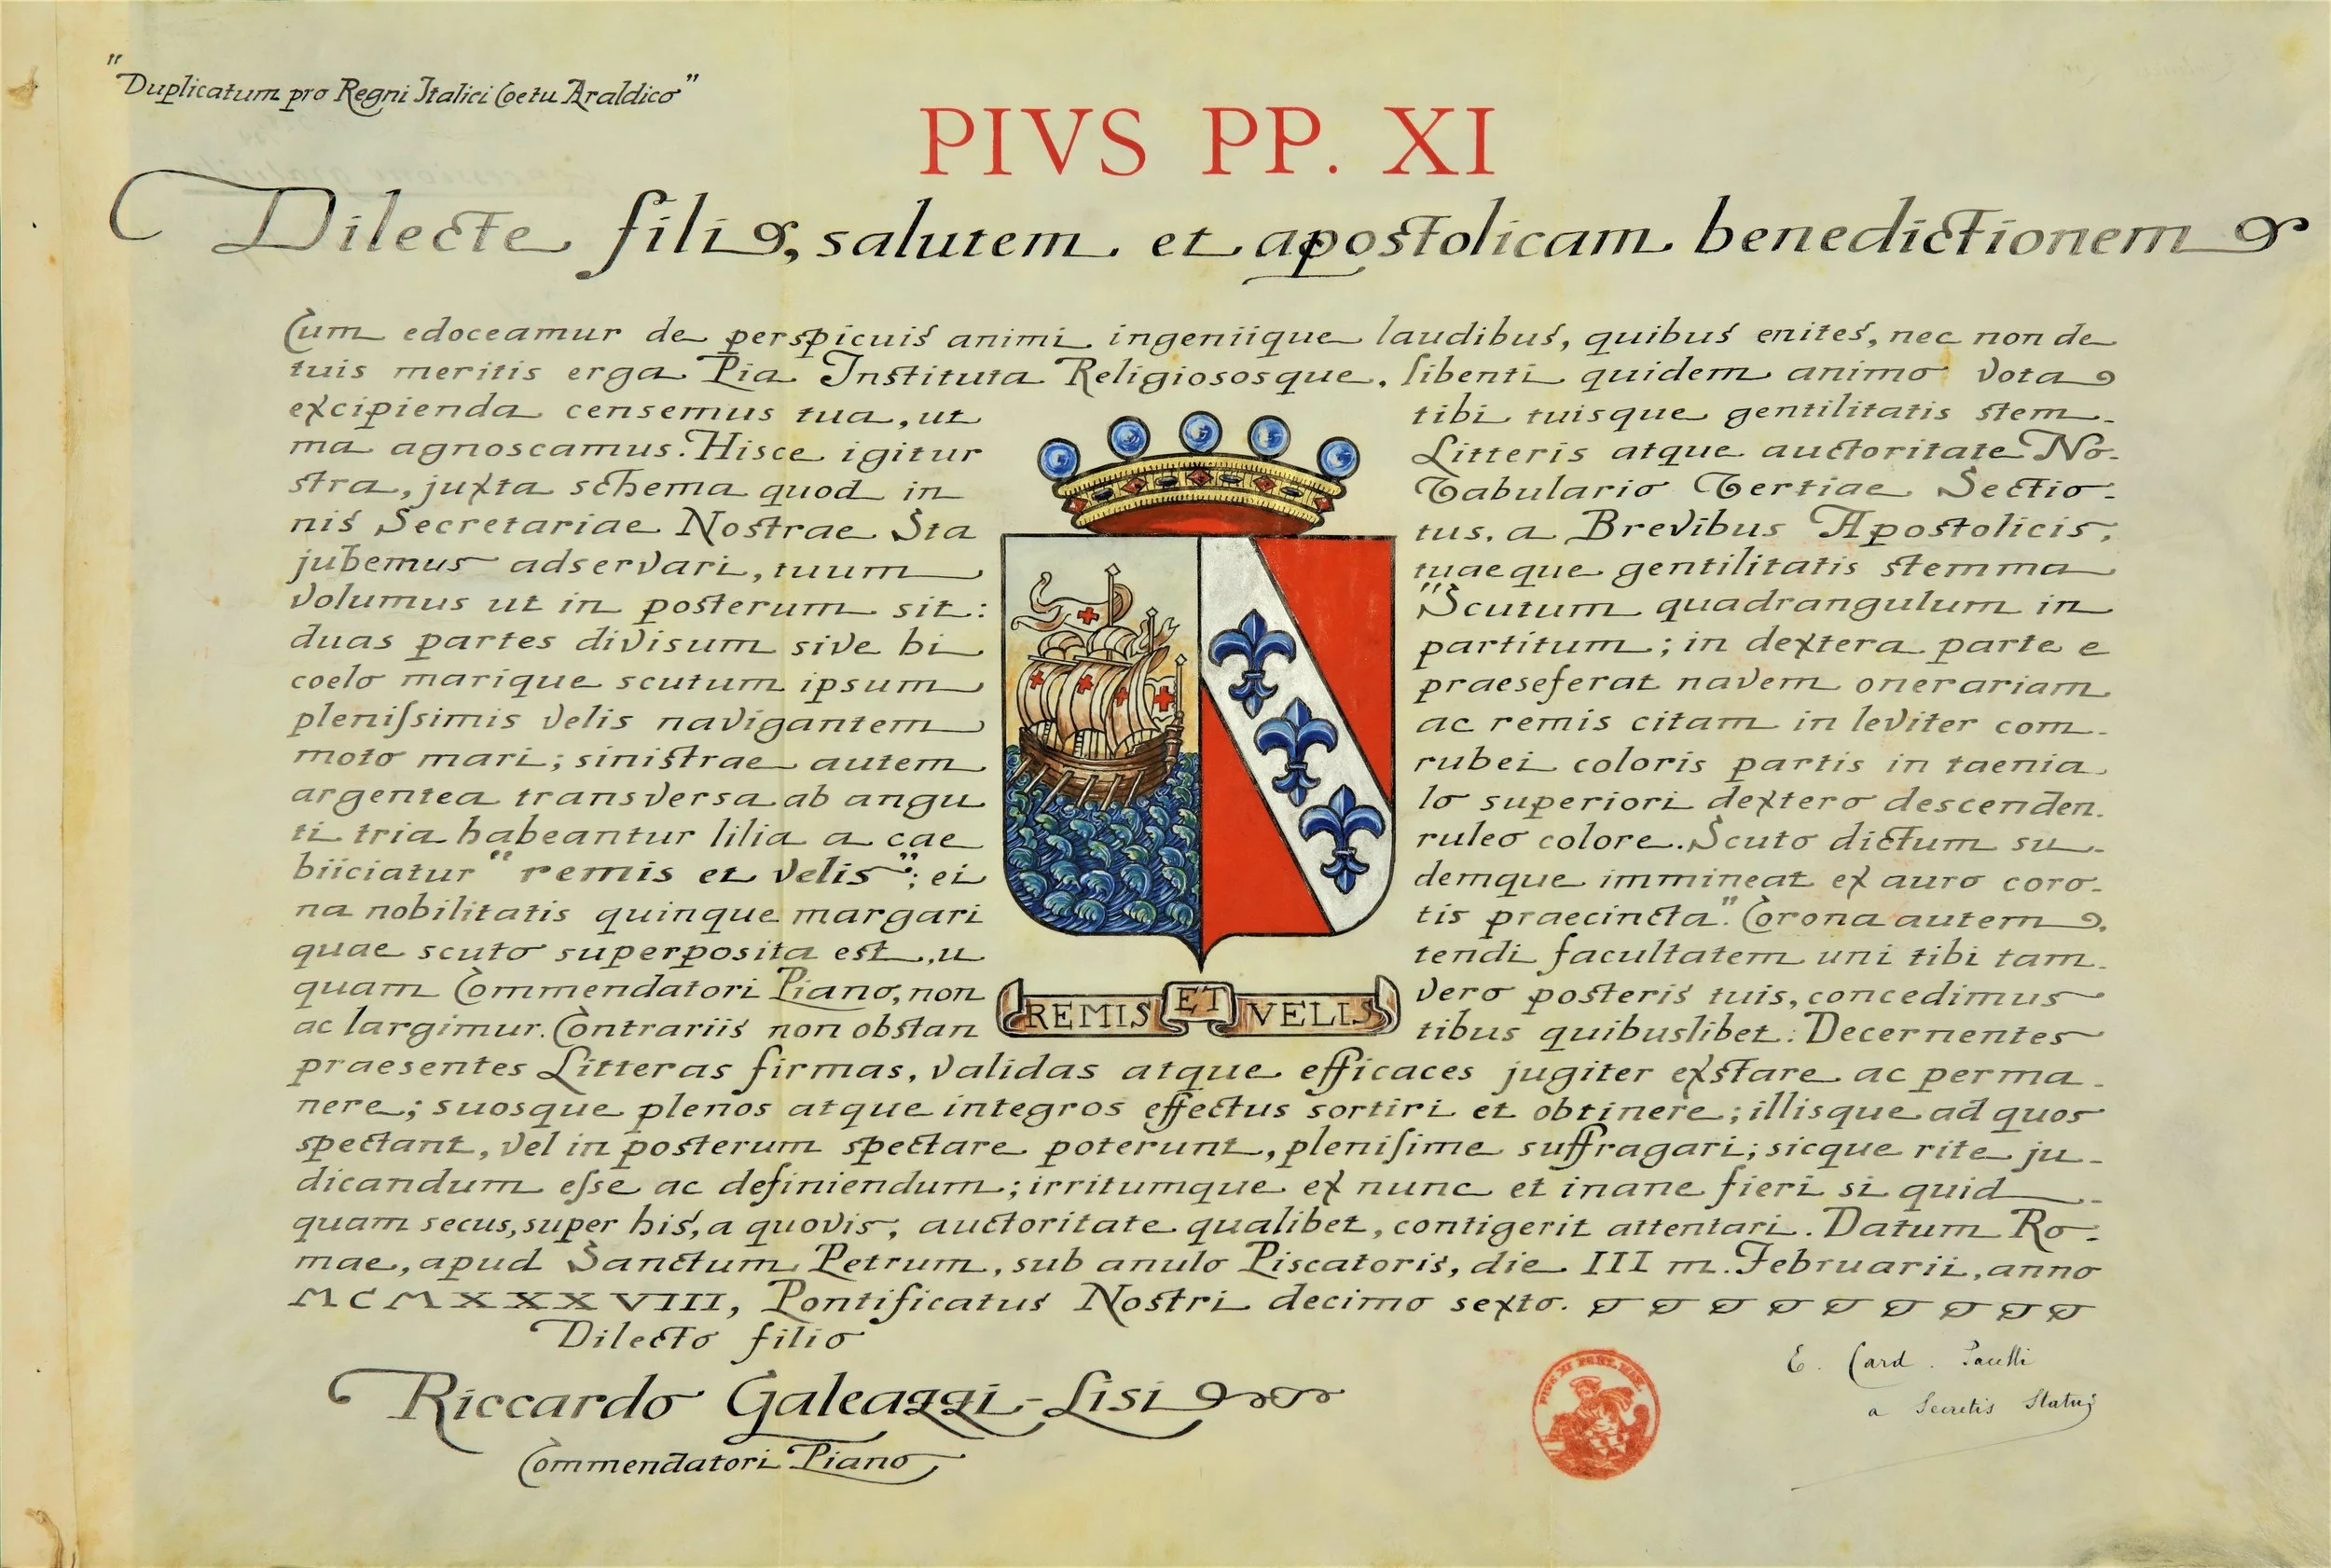 "Duplicatum pro Regni Italici Coetu Araldico"
PIVS PP. XI
Dilecte fili, salutem et apostolicam benedictionem
Cum edoceamur de perspicuis animi ingeniique laudibus, quibus enites, nec non de
tuis meritis erga Pia Instituta Religiososque, libenti quidem animo vota
excipienda censemus tua, ut tibi tuisque gentilitatis stem-
ma agnoscamus. Hisce igitur Litteris atque auctoritate No-
stra, juxta schema quod in Tabulario Tertiae Sectio-
nis Secretariae Nostrae Sta tus, a Brevibus Apostolicis,
jubemus adservari, tuum tuaeque gentilitatis stemma
volumus ut in posterum sit: "Scutum quadrangulum in
duas partes divisum sive bi partitum; in dextera parte e
coelo marique scutum ipsum praeseferat navem onerariam
plenissimis velis navigantem ac remis citam in leviter com-
moto mari; sinistrae autem rubei coloris partis in taenia
argentea transversa ab angu lo superiori dextero descenden-
ti tria habeantur lilia a cae ruleo colore. Scuto dictum su-
biiciatur "remis et velis"; ei demque immineat ex auro coro-
na nobilitatis quinque margari tis praecincta". Corona autem,
quae scuto superposita est, u tendi facultatem uni tibi tam-
quam Commendatori Piano, non vero posteris tuis, concedimus
ac largimur. Contrariis non obstan tibus quibuslibet. Decernentes
praesentes Litteras firmas, validas atque efficaces jugiter exstare ac perma-
nere; suosque plenos atque integros effectus sortiri et obtinere; illisque ad quos
spectant, vel in posterum spectare poterunt, plenisime suffragari; sicque rite ju-
dicandum esse ac definiendum; irritumque ex nunc et inane fieri si quid-
quam secus, super his, a quovis, auctoritate qualibet, contigerit attentari. Datum Ro-
mae, apud Sanctum Petrum, sub anulo Piscatoris, die III m. Februarii, anno
MCMXXXVIII, Pontificatus Nostri decimo sexto.
REMIS ET VELIS
Dilecto filio
Riccardo Galeazzi-Lisi
Commendatori Piano
PIVS XI PONT. MAX.
E. Card. Pacelli
a Secretis Status